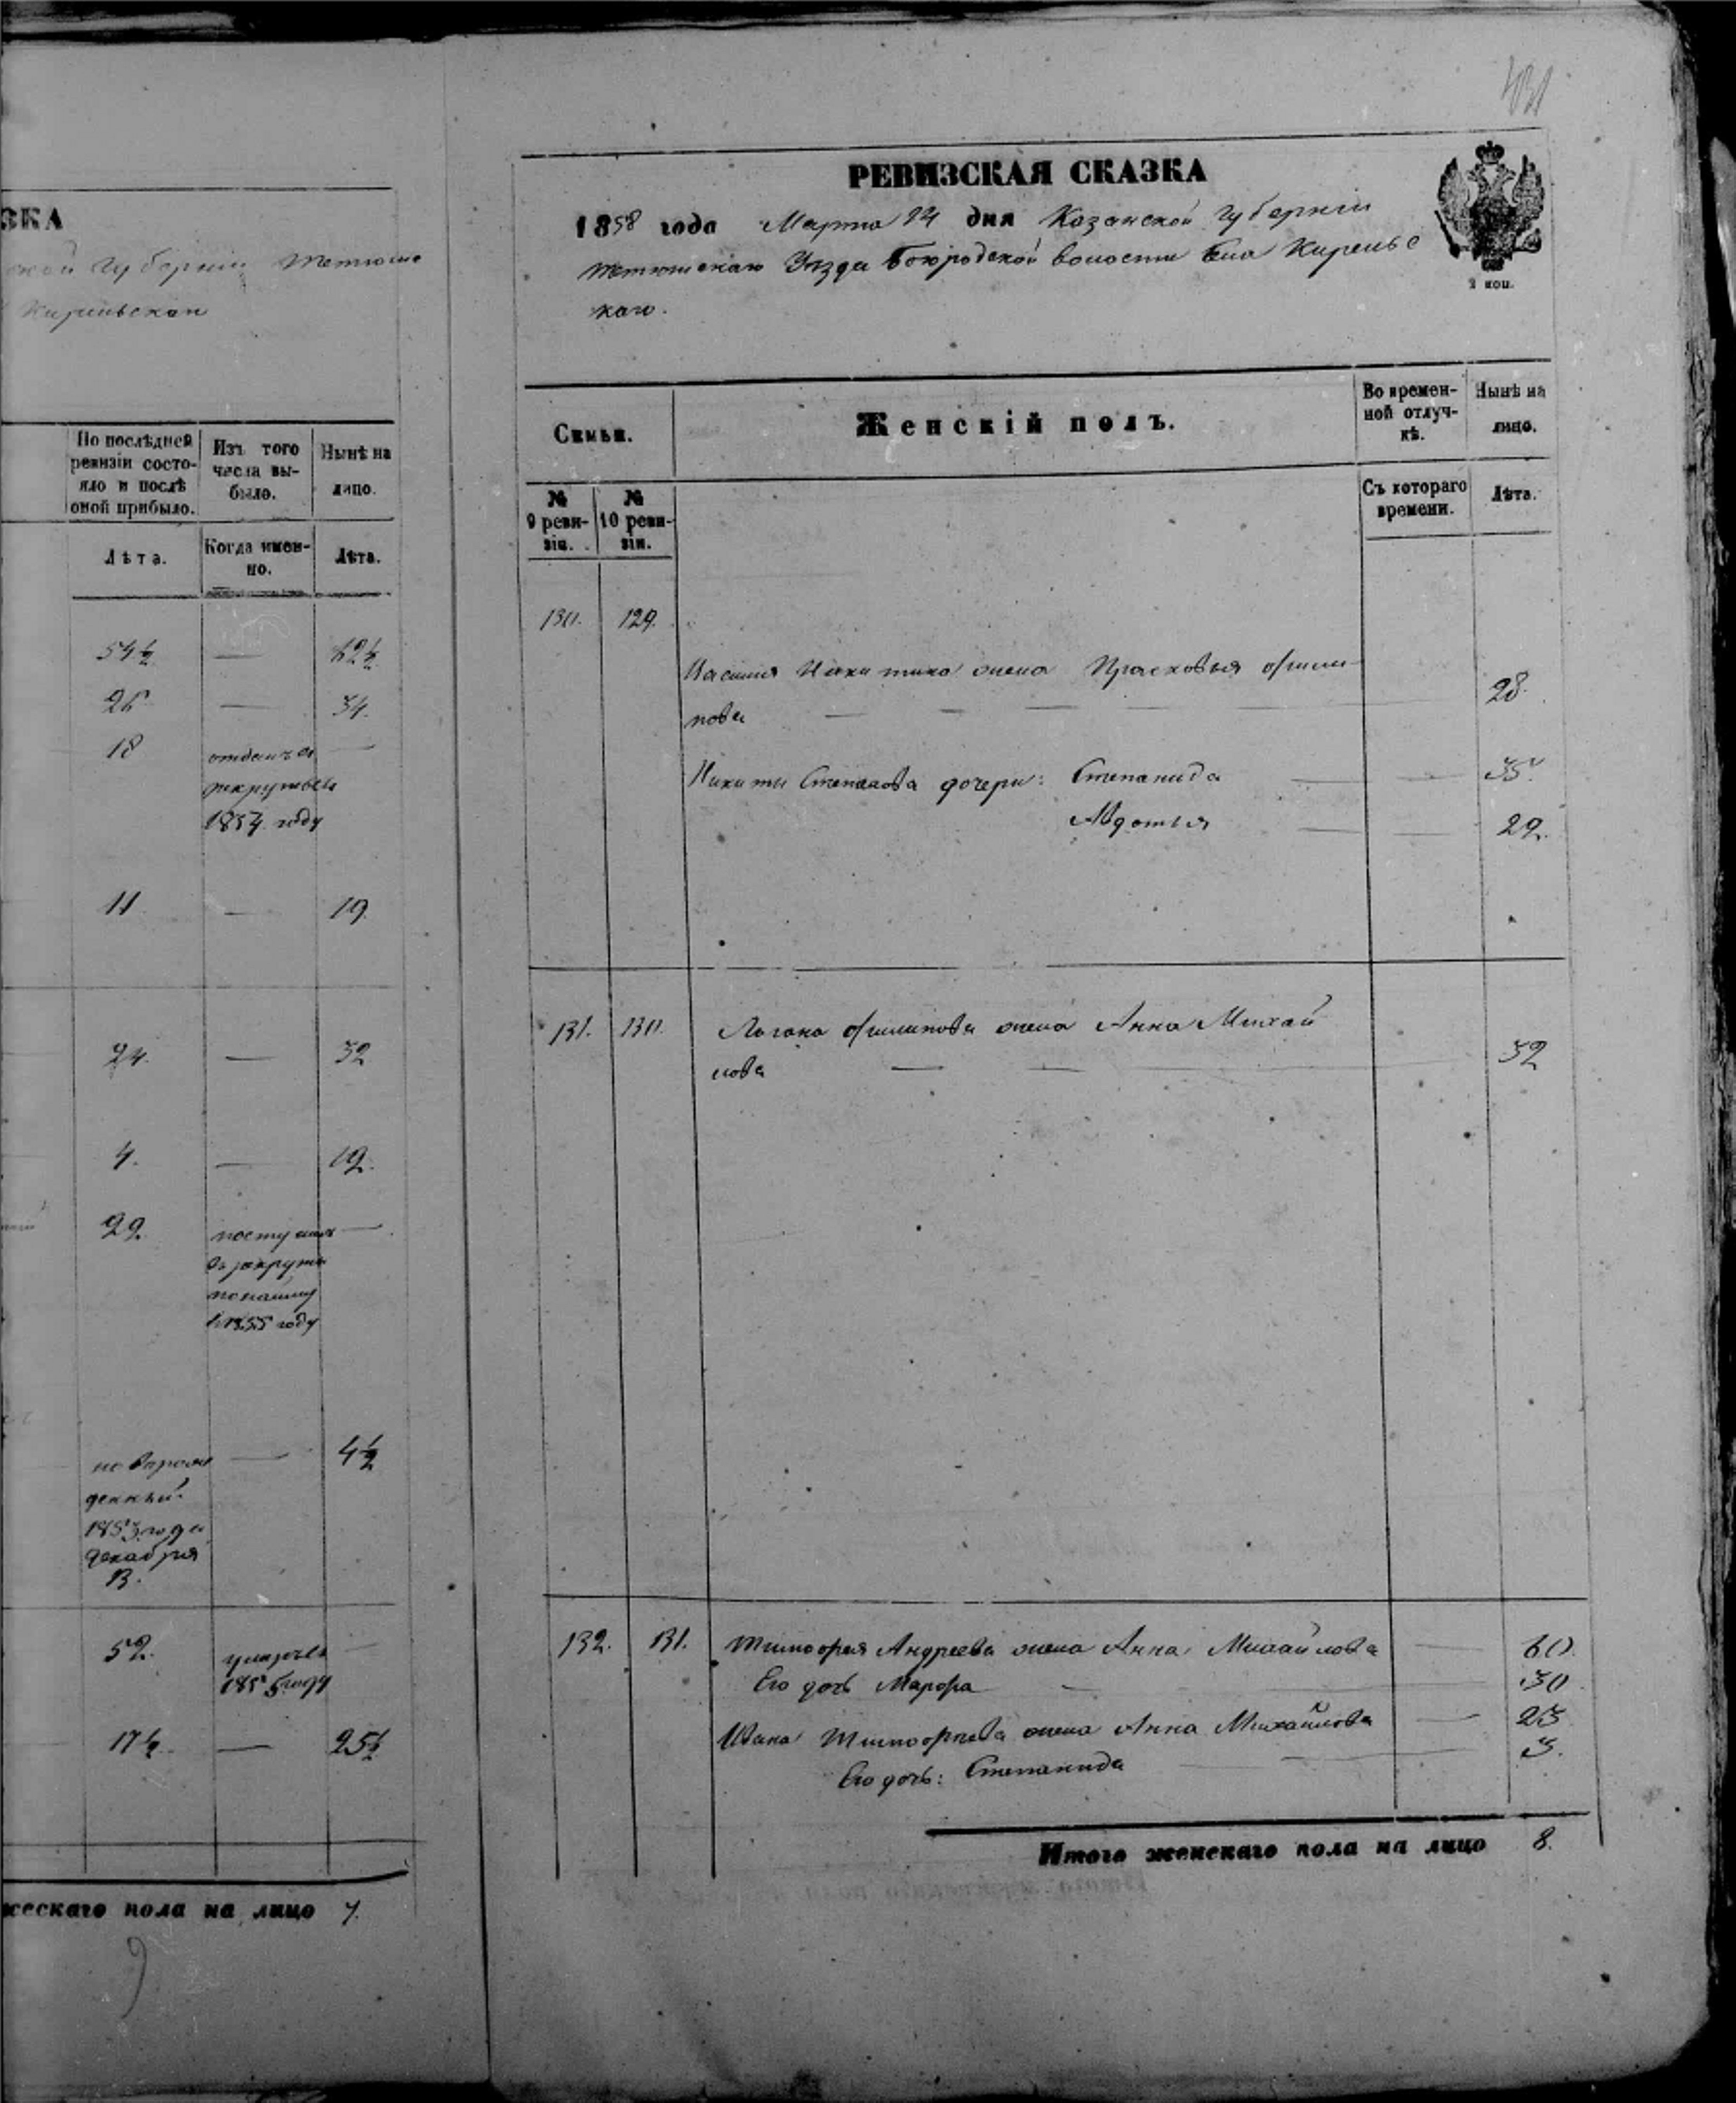 ЗКА
ской Губерніи Тетюшс
Кирельскаго
По послѣдней
ревизіи состо-
яло и послѣ
оной прибыло.
Изъ того
числа вы-
было.
Нынѣ на
лицо.
Лѣта.
Когда имен-
но.
Лѣта.
54½ — 62½
26 — 34.
18 отданъ въ —
рекруты въ
1854 году
11 — 19.
24. — 32
4. — 12.
29. поступилъ —
въ рекруты
по найму
въ 1855 году
новорож — 4½
денный
1853 года
декабря
13.
52. умеръ въ —
1855 году
17½ — 25½
жескаго пола на лицо 7.
РЕВИЗСКАЯ СКАЗКА
1858 года Марта 24 дня Казанской Губерніи
Тетюшскаго Уѣзда волости села Кирельс
каго.
2 коп.
Семьи.
Женскій полъ.
Во времен-
ной отлуч-
кѣ.
Нынѣ на
лицо.
№
9 реви-
зіи.
№
10 реви-
зіи.
Съ котораго
времени.
Лѣта.
130. 129.
Василія Никитина жена Прасковья Фили-
пова — — — — — 28.
Никиты Степанова дочери: Степанида — — 35.
Авдотья — — 22.
131. 130. жена Анна Михай
лова — — 32
132. 131. Тимофея Андреева жена Анна Михайлова — 60.
Его дочь Марфа — 30.
Ивана Тимофеева жена Анна Михайлова — 23
Его дочь: Степанида — 3.
Итого женскаго пола на лицо 8.